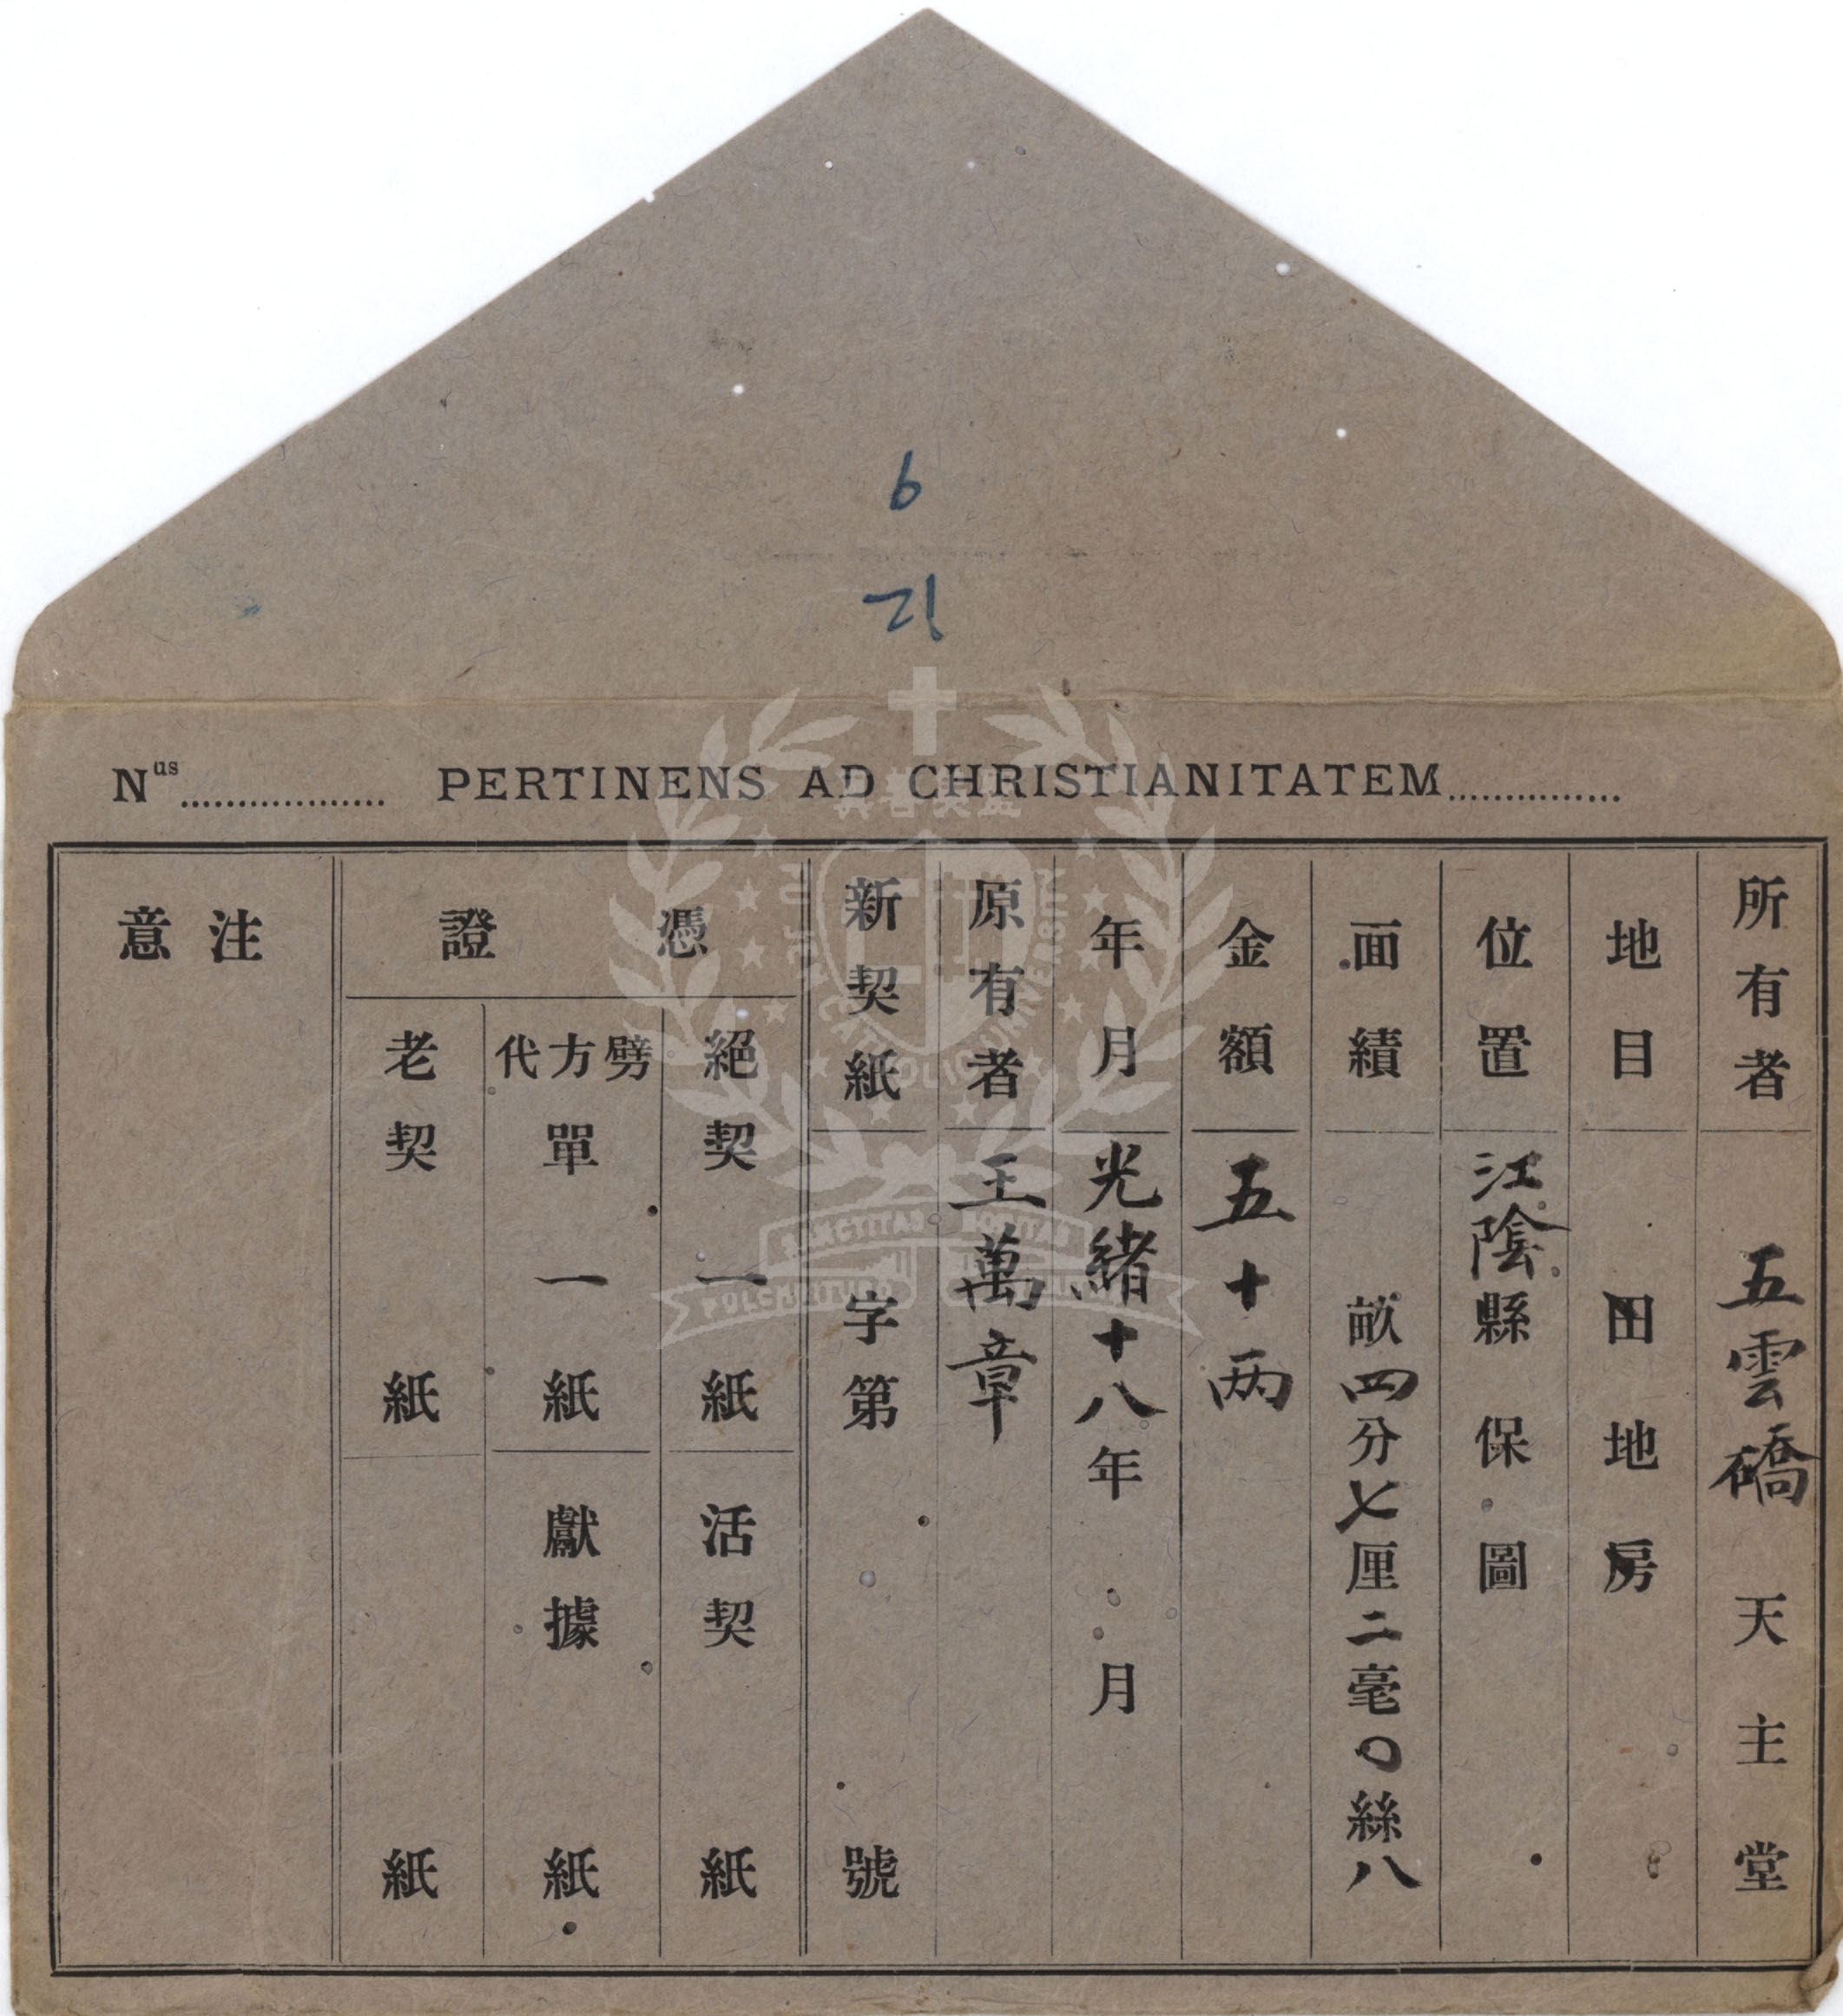 6
21
Nus.................. PERTINENS AD CHRISTIANITATEM...............
所有者 五雲礄天主堂
地目 田地房
位置 江陰縣 保 圖
面績 畝四分七厘二毫〇絲八
金額 五十两
年月 光緒十八年 月
原有者 王萬章
新契紙 字第 號
憑證
絕契一紙 活契 紙
劈方代單一紙 獻據 紙
老契 紙 紙
注意